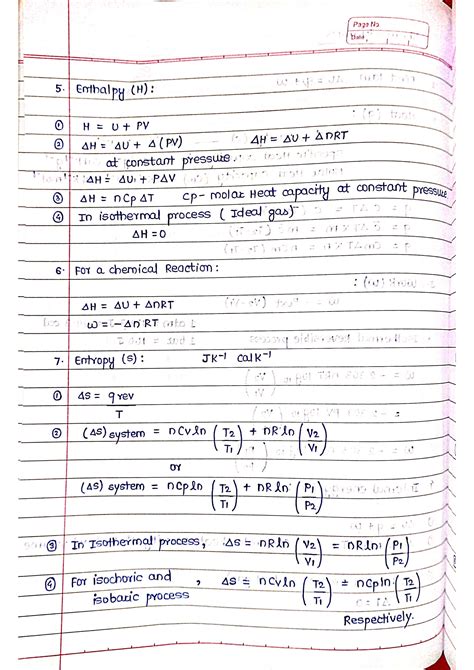 Page No.
Date
5. Enthalpy (H):
① H = U + PV
② ΔH = ΔU + Δ(PV) ΔH = ΔU + ΔnRT
at constant pressure.
ΔH = ΔU + PΔV
③ ΔH = nCpΔT Cp - molar Heat capacity at constant pressure
④ In isothermal process (Ideal gas)
ΔH = 0
6. For a chemical Reaction:
ΔH = ΔU + ΔnRT
ω = -ΔnRT
7. Entropy (s): JK⁻¹ calK⁻¹
① ΔS = qrev/T
② (ΔS) system = nCvln (T2/T1) + nRln (V2/V1)
or
(ΔS) system = nCpln (T2/T1) + nRln (P1/P2)
③ In Isothermal process, ΔS = nRln (V2/V1) = nRln (P1/P2)
④ For isochoric and isobaric process, ΔS = nCvln (T2/T1) = nCpln (T2/T1)
Respectively.